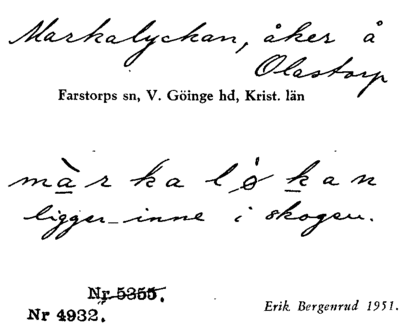 Markalyckan, åker å
Olastorp
Farstorps sn, V. Göinge hd, Krist. län
màrkalǿkan
ligger inne i skogen.
Nr 5355.
Nr 4932.
Erik Bergenrud 1951.